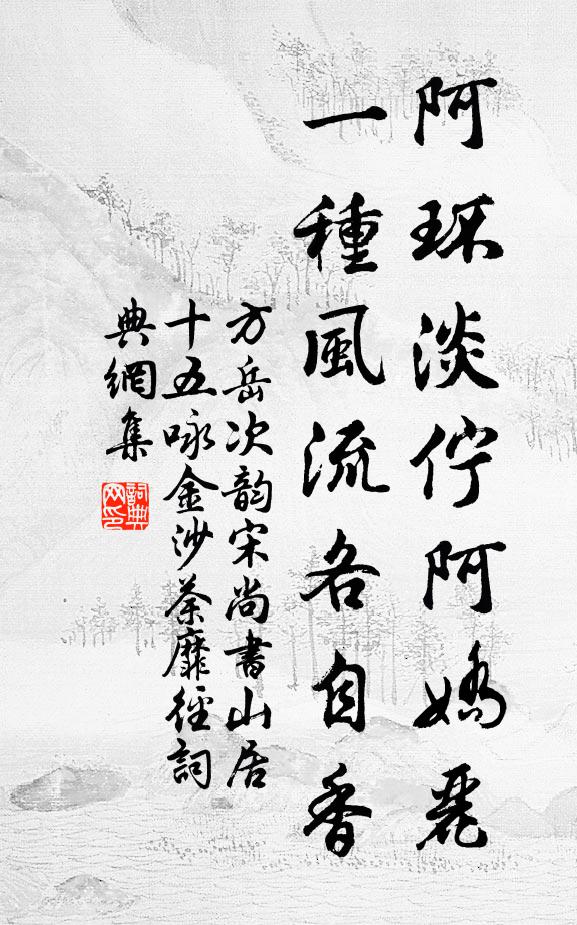 阿环淡佇阿嬌麗
一種風流各自香
方岳次韵宋尚書山居
十五咏金沙荼䕷徑詞
典網集
詞典網印